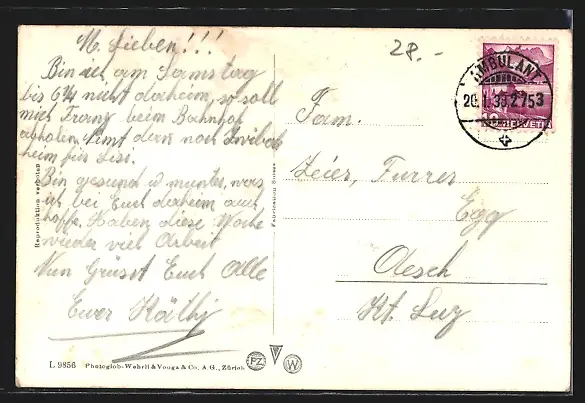 M. Lieben!!!
Bin ich am Samstag
bis 6¼ nicht daheim, so soll
mich Franz beim Bahnhof
abholen. Nimt dann noch Zwibel
heim für Lisi.
Bin gesund u munter, was
ich bei Euch daheim auch
hoffe. Haben diese Woche
wieder viel Arbeit
Nun Grüsst Euch Alle
Euer Käthy
28.-
AMBULANT
20.1.39.2753
HELVETIA
Fam.
Zeier, Furrer
Egg
Aesch
Kt. Luz
Reproduktion verboten
Fabrication Suisse
L 9856 Photoglob-Wehrli & Vouga & Co. A.G., Zürich
PZ W